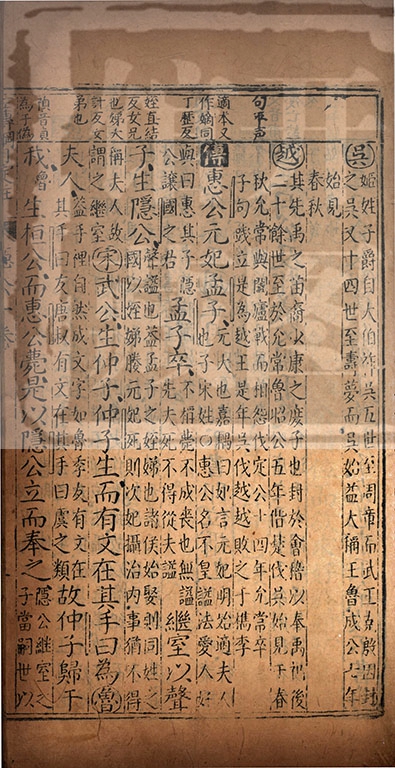 吳姬姓子爵自大伯作吳五世至周章而武王克殷因封
之吳又十四世至壽夢而吳始益大稱王魯成公七年
始見
春秋
越其先禹之苗裔少康之庶子也封於會稽以奉禹祀後
二十餘世至於允常魯昭公五年偕楚伐吳始見于春
句平声
秋允常與闔廬戰而相怨伐定公十四年允常卒
子句踐立是為越王是年吳伐越越敗之于檇李
適本又
作嫡同
丁歷反
傳惠公元妃孟子元大也嘉耦曰妃言元妃明始適夫人
也子宋姓○惠公名不皇諡法愛人好
與曰惠其子隱
公讓國之君
孟子卒不稱薨不成喪也無諡
先夫死不得從夫諡
繼室以聲
姪直結
子生隱公聲諡也蓋孟子之姪娣也諸侯始娶則同姓之
國以姪娣媵元妃死則次妃攝治內事猶不得
稱夫人故
謂之繼室
宋武公生仲子仲子生而有文在其手曰為魯
夫人蓋手理自然成文字如魯季友有文在
其手曰友唐叔有文在其手曰虞之類
故仲子歸于
我魯生桓公而惠公薨是以隱公立而奉之隱公繼室之
子當嗣世以